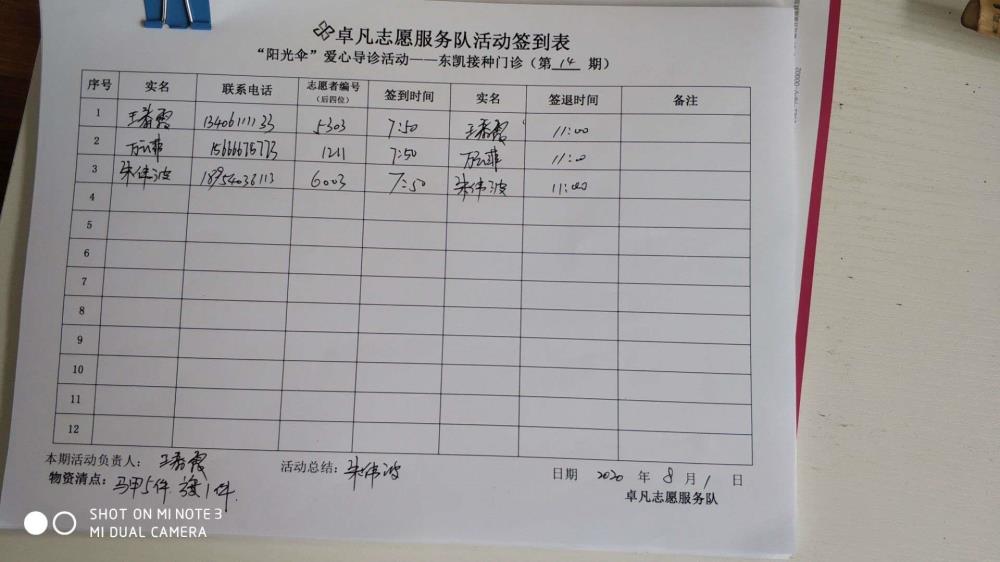 卓凡志愿服务队活动签到表
“阳光伞”爱心导诊活动——东凯接种门诊（第 14 期）
序号 实名 联系电话 志愿者编号（后四位） 签到时间 实名 签退时间 备注
1 王春霞 13406111133 5303 7:50 王春霞 11:00
2 15666675773 1211 7:50 11:0
3 朱伟波 18954036113 6003 7:50 朱伟波 11:00
4
5
6
7
8
9
10
11
12
本期活动负责人： 王春霞 活动总结： 朱伟波 日期 2020 年 8 月 1 日
物资清点： 马甲5件 旗1件. 卓凡志愿服务队
SHOT ON MI NOTE 3
MI DUAL CAMERA